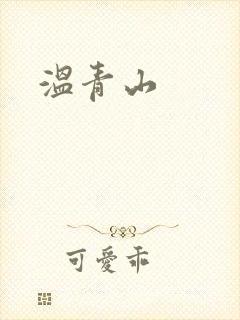 溫青山
可愛乖